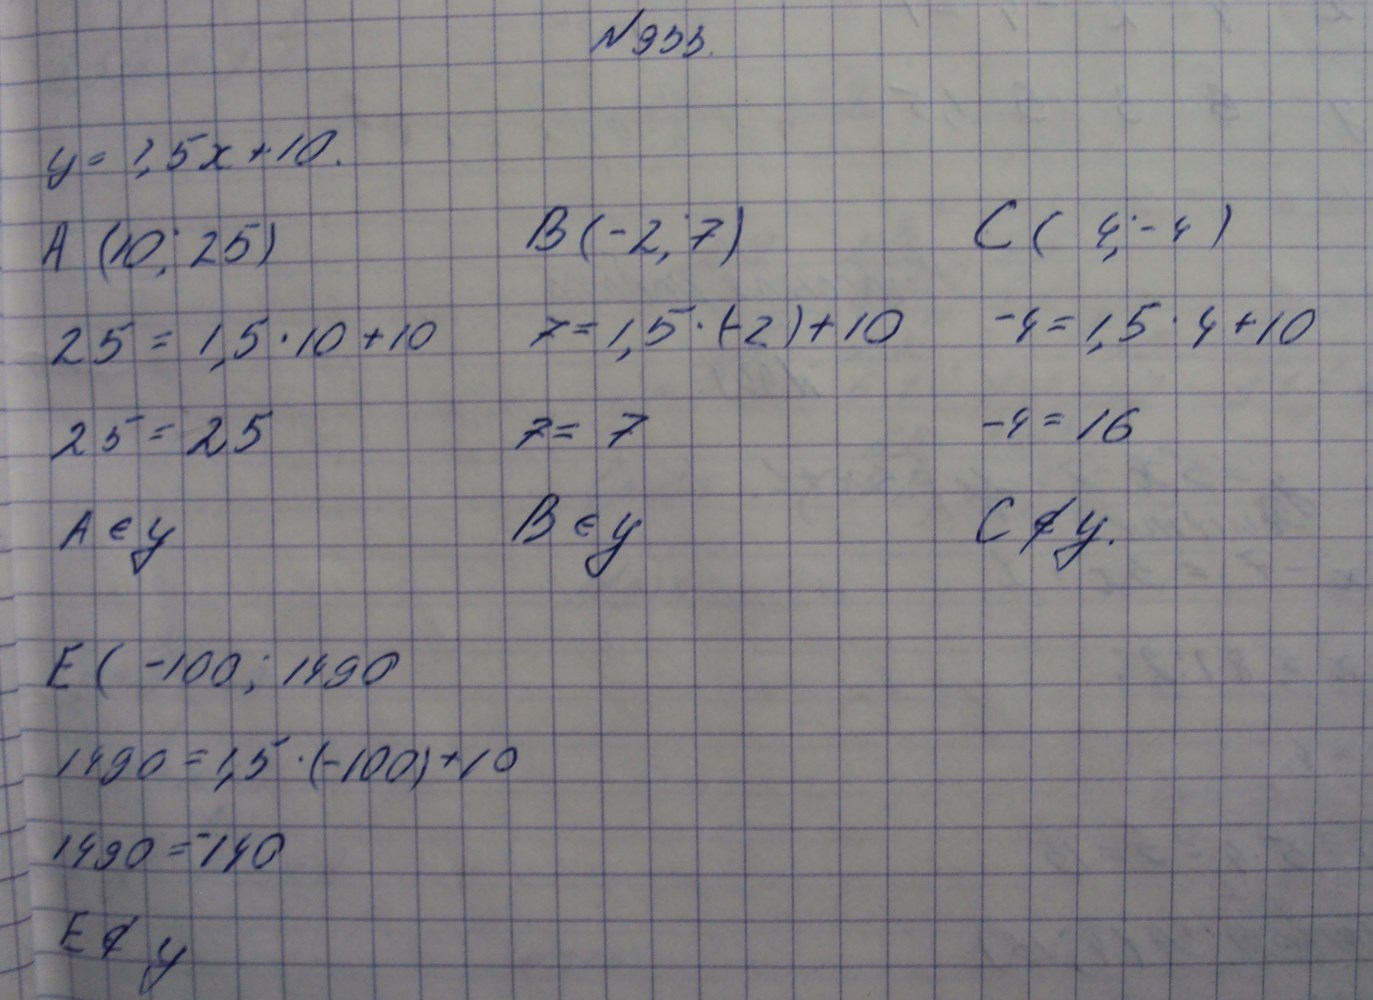 №933.
y = 1,5x + 10.
A (10; 25) B (-2; 7) C ( 4; -4 )
25 = 1,5 · 10 + 10 7 = 1,5 · (-2) + 10 -4 = 1,5 · 4 + 10
25 = 25 7 = 7 -4 = 16
A ∈ y B ∈ y C ∉ y.
E ( -100; 1490
1490 = 1,5 · (-100) + 10
1490 = -140
E ∉ y